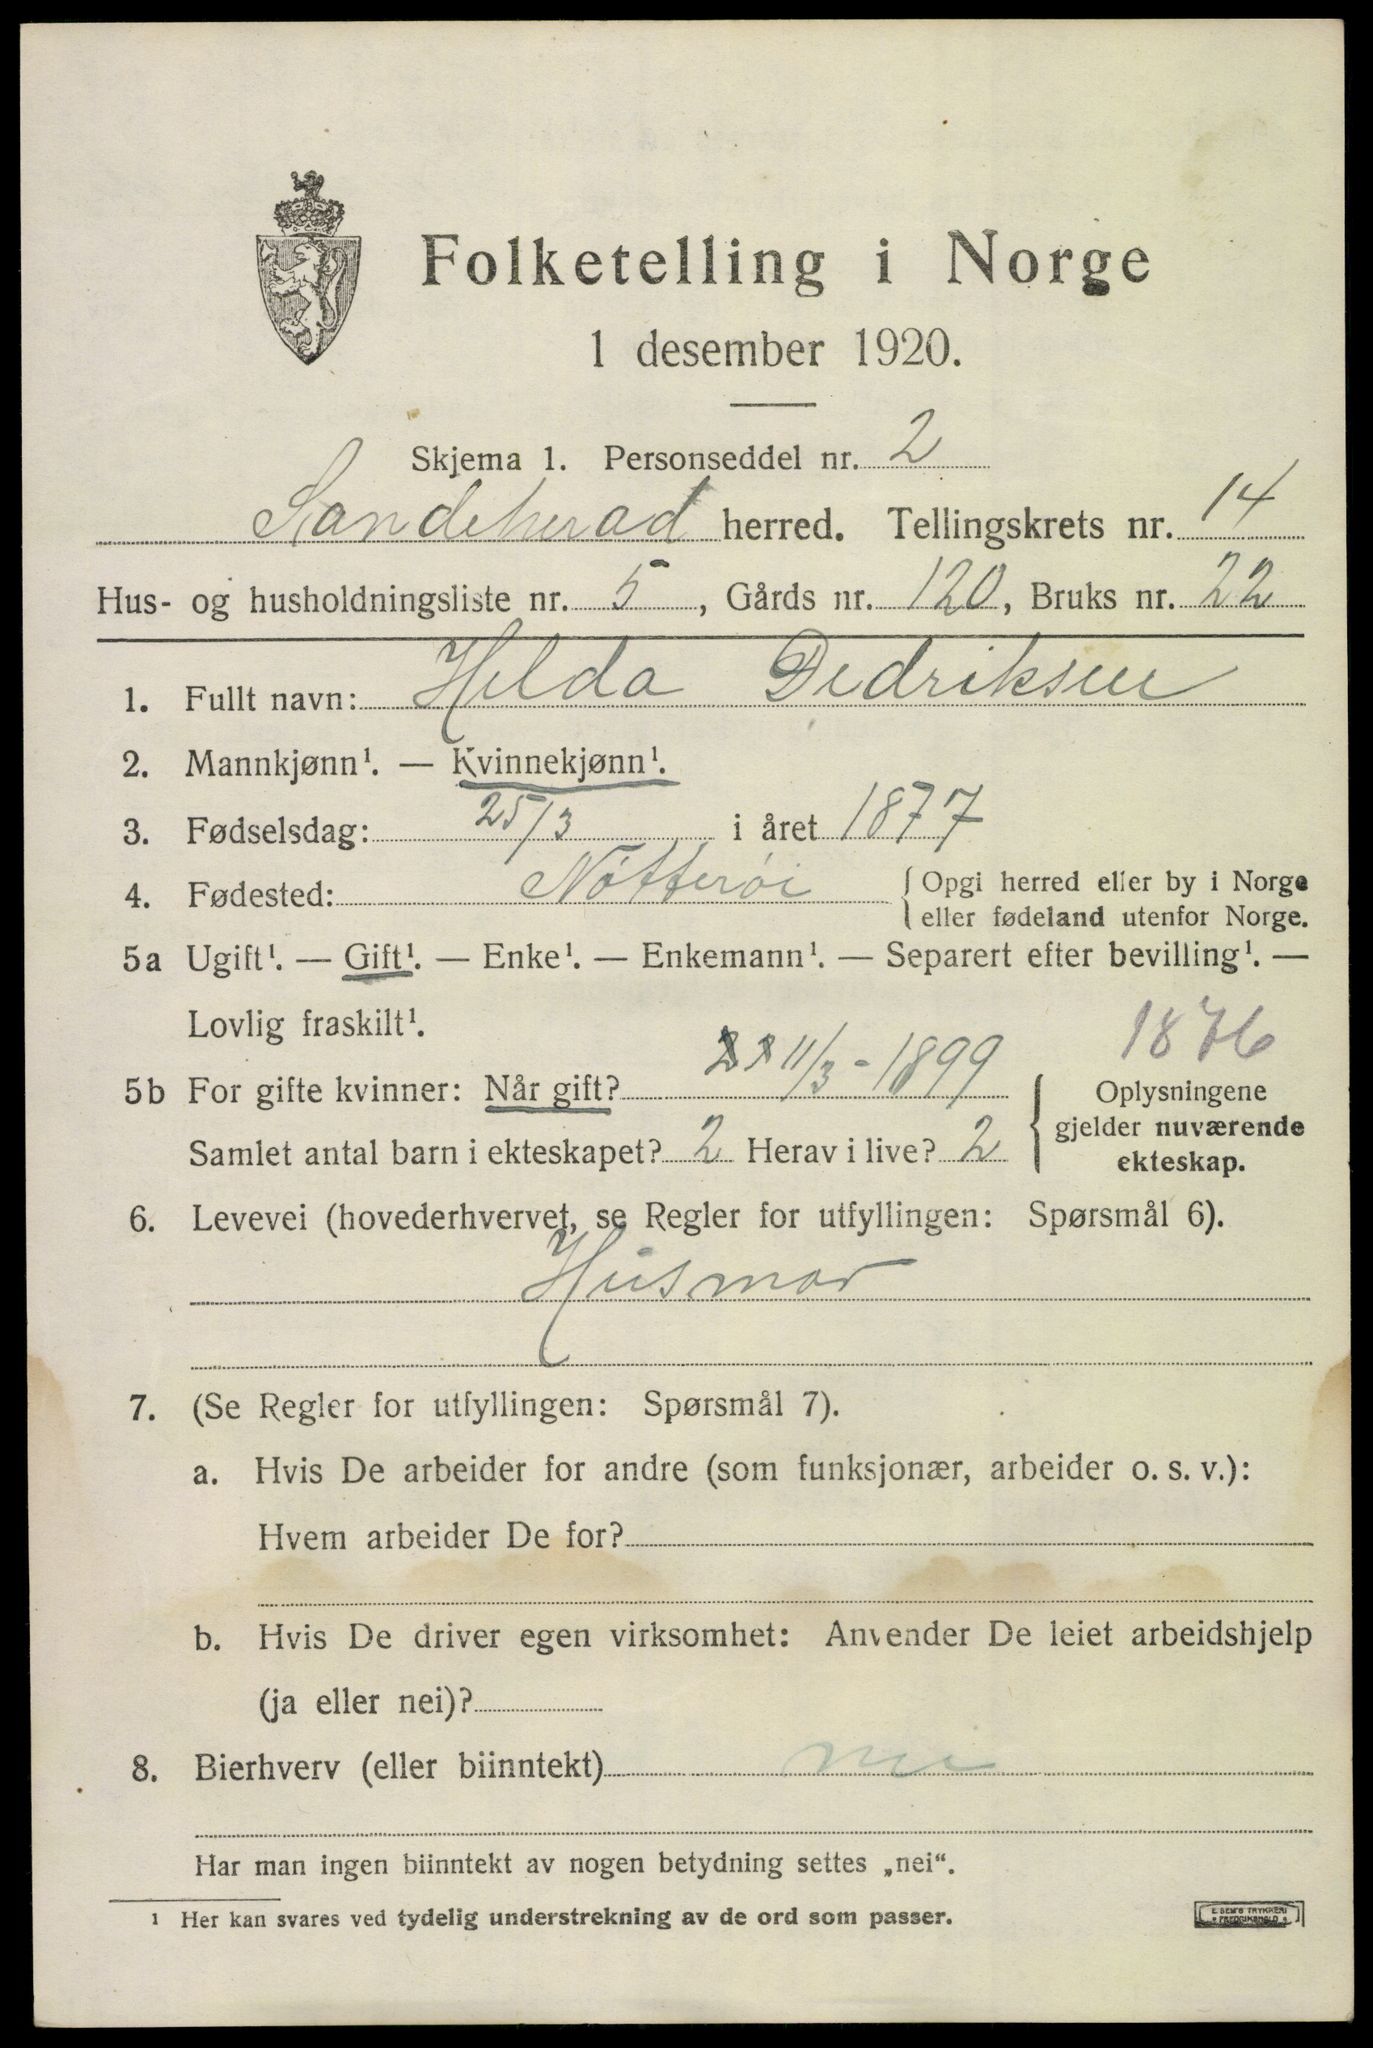 Folketelling i Norge
1 desember 1920.
Skjema 1. Personseddel nr. 2
Sandeherad herred. Tellingskrets nr. 14
Hus- og husholdningsliste nr. 5, Gårds nr. 120, Bruks nr. 22
1. Fullt navn: Helda Dedriksen
2. Mannkjønn¹. — Kvinnekjønn¹.
3. Fødselsdag: 25/3 i året 1877
4. Fødested: Nøtterøi {Opgi herred eller by i Norge
eller fødeland utenfor Norge.
5a Ugift¹. — Gift¹. — Enke¹. — Enkemann¹. — Separert efter bevilling¹. —
Lovlig fraskilt¹.
1876
5b For gifte kvinner: Når gift? 11/3-1899
Samlet antal barn i ekteskapet? 2 Herav i live? 2
{Oplysningene
gjelder nuværende
ekteskap.
6. Levevei (hovederhvervet, se Regler for utfyllingen: Spørsmål 6).
Husmor
7. (Se Regler for utfyllingen: Spørsmål 7).
a. Hvis De arbeider for andre (som funksjonær, arbeider o. s. v.):
Hvem arbeider De for?
b. Hvis De driver egen virksomhet: Anvender De leiet arbeidshjelp
(ja eller nei)?
8. Bierhverv (eller biinntekt) nei
Har man ingen biinntekt av nogen betydning settes „nei“.
¹ Her kan svares ved tydelig understrekning av de ord som passer.
E. SEM'S TRYKKERI
FREDRIKSHALD